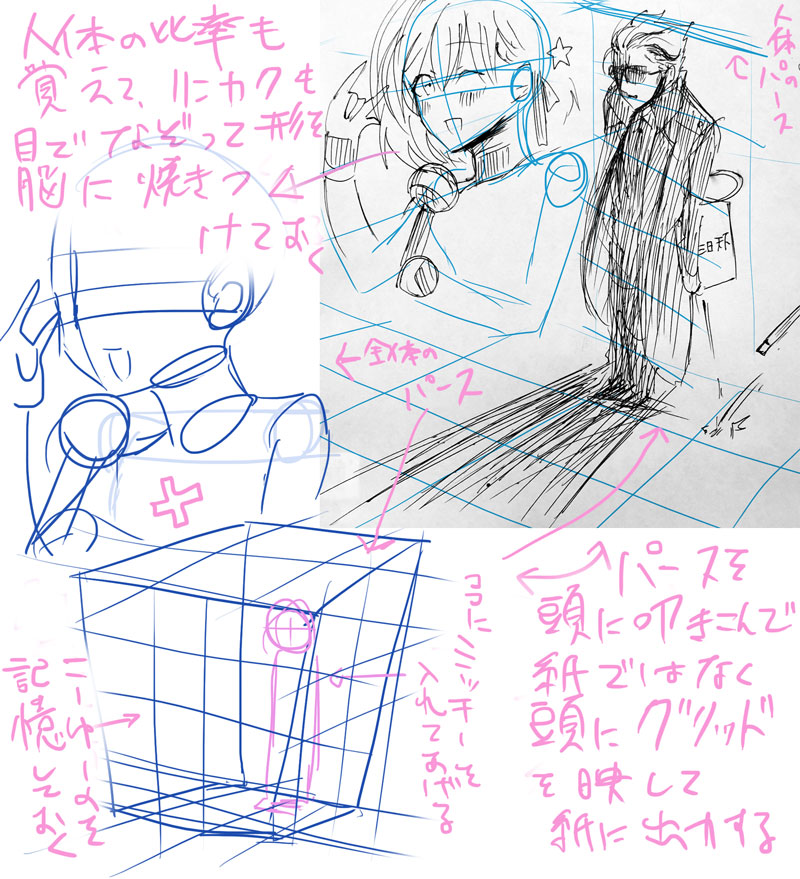 人体の比率も
覚えて、リニカクも
目でなぞって形を
脳に焼きつ
けておく
人体のパース
全体の
パース
パースを
頭に叩きこんで
紙ではなく
頭にグリッド
を映して
紙に出力する
入れてあげる
こーゆーのを
記憶しておく